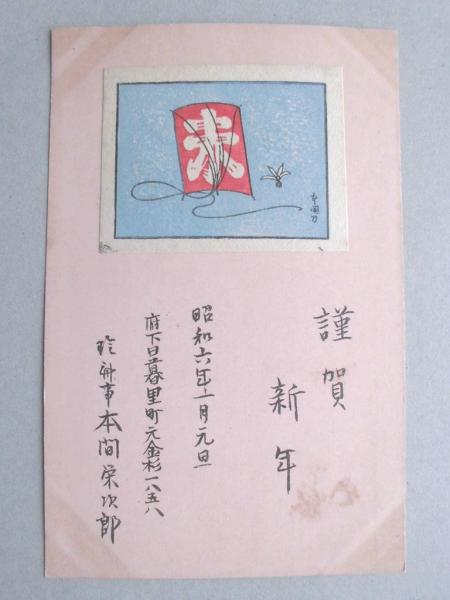 未
本間刀
謹賀
新年
昭和六年一月元旦
府下日暮里町元金杉一八五八
本間栄次郎